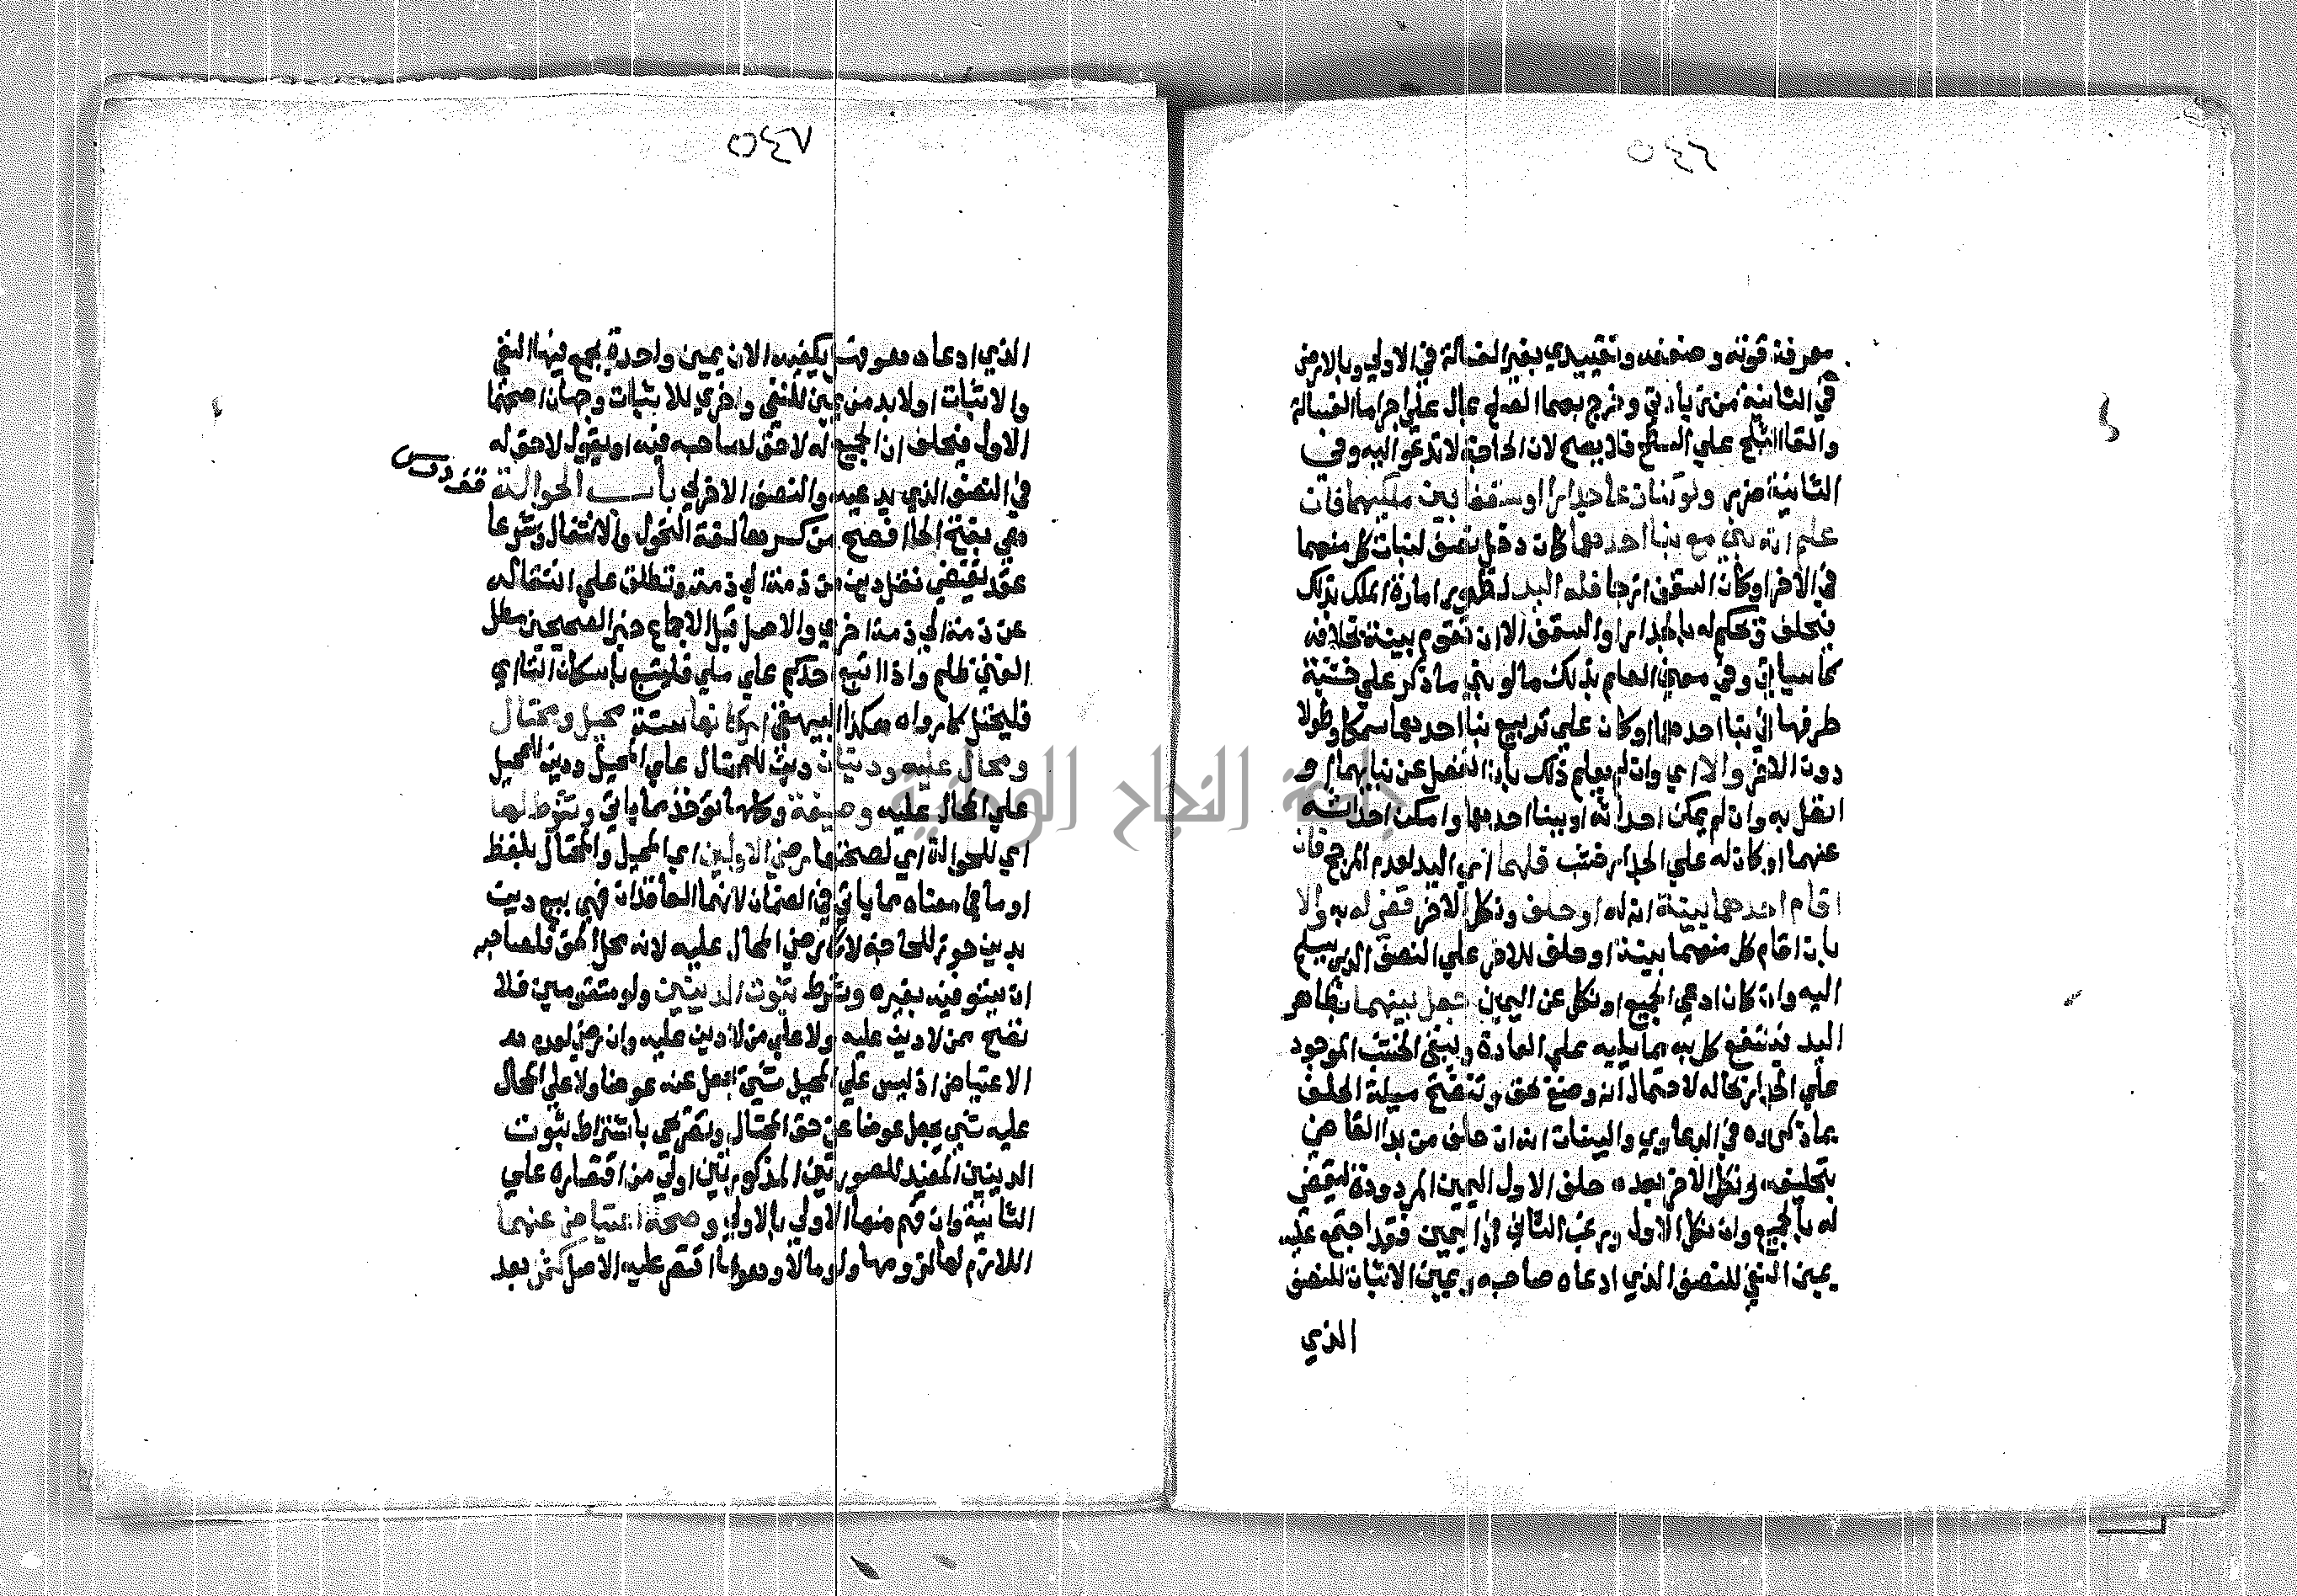 ٥٤٦
معرفة قوته وضعفه وتقييدي بغير الغسالة في الاولي وبالارض
في الثانية من زيادتي وخرج بهما الصلح بمال علي اجرا ما الغسالة
والقا الثلج علي السطح فلا يصح لان الحاجة لا تدعو اليه وفي
الثانية ضرر ولو تنازعا جدارا او سقفا بين ملكيهما فان
علم انه بني مع بنا احدهما كان دخل نصف لبنات كل منهما
في الاخر او كان السقف ازجا فله اليد لظهور امارة الملك بذلك
فيحلف ويحكم له بالجدار او السقف الا ان تقوم بينة بخلافه
كما سياتي وفي معني العلم بذلك ما لو بني ما ذكر علي خشبة
طرفها في بنا احدهما او كان علي تربيع بنا احدهما سمكا وطولا
دون الاخر والا اي وان لم يعلم ذلك بان انفصل عن بنايهما او
اتصل به وان لم يمكن احداثه او ببنا احدهما وامكن احداثه
عنهما او كان له علي الجدار خشب فلهما اي اليد لعدم المرجح فان
اقام احدهما بينة انه له او حلف ونكل الاخر قضي له به والا
بان اقام كل منهما بينة او حلف للاخر علي النصف الذي يسلم
اليه وان كان ادعي الجميع او نكل عن اليمين جعل بينهما بظاهر
اليد فينتفع كل به مما يليه علي العادة ويبقي الخشب الموجود
علي الجدار بحاله لاحتمال انه وضع بحق وتتضح مسيلة الحلف
بما ذكروه في الدعاوي والبينات انه ان حلف من بدا القاضي
بتحليفه ونكل الاخر بعده حلف الاول اليمين المردودة ليقضي
له بالجميع وان نكل الاول ورغب الثاني في اليمين فقد اجتمع عليه
يمين النفي للنصف الذي ادعاه صاحبه ويمين الاثبات للنصف
الذي
٥٤٧
الذي ادعاه هو فهل يكفيه الان يمين واحدة يجمع فيها النفي
والاثبات او لا بد من يمين للنفي واخري للاثبات وجهان اصحهما
الاول فيحلف ان الجميع له لا حق لصاحبه فيه او يقول لا حق له
في النصف الذي يدعيه والنصف الاخر لي باب الحوالة
هي بفتح الحا افصح من كسرها لغة التحول والانتقال وشرعا
عقد يقتضي نقل دين من ذمة الي ذمة وتطلق علي انتقاله
عن ذمة الي ذمة اخري والاصل قبل الاجماع خبر الصحيحين مطل
الغني ظلم واذا اتبع احدكم علي ملي فليتبع باسكان التا اي
فليحتل كما رواه هكذا البيهقي اركانها ستة محيل ومحتال
ومحال عليه ودينان دين للمحتال علي المحيل ودين للمحيل
علي المحال عليه وصيغة وكلها توخذ مما ياتي وشرط لها
اي للحوالة اي لصحتها رضي الاولين اي المحيل والمحتال بلفظ
او ما في معناه مما ياتي في الضمان لانهما العاقدان فهي بيع دين
بدين جوز للحاجة لا رضي المحال عليه لانه محل الحق فلصاحبه
ان يستوفيه بغيره وشرط ثبوت الدينين ولو متقومين فلا
تصح ممن لا دين عليه ولا علي من لا دين عليه وان رضي لعدم
الاعتياض اذ ليس علي المحيل شي يجعل عنه عوضا ولا علي المحال
عليه شي يجعل عوضا عن حق المحتال وتصريحي باشتراط ثبوت
الدينين المفيد للصورتين المذكورتين اولي من اقتصاره علي
الثانية وان فهم منها الاولي بالاولي وصحة اعتياض عنهما
اللازم لها لزومهما ولو مالا وهو ما اقتصر عليه الاصل كثمن بعد